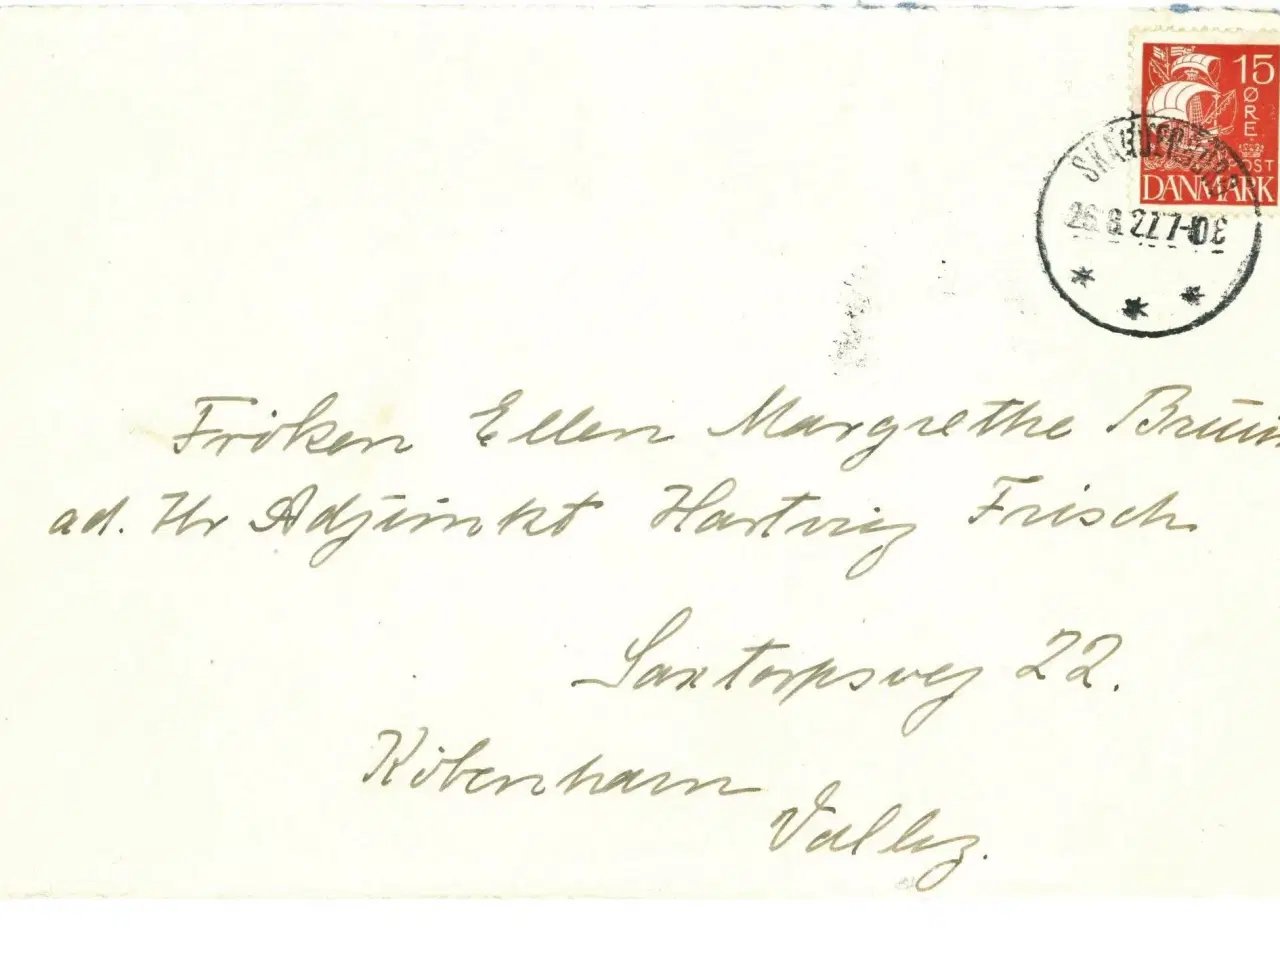 15
ØRE
POST
DANMARK
SKANDERBORG
26.8.27 7-10 E
Fröken Ellen Margrethe Bruun
ad. Hr Adjunkt Hartvig Frisch
Saxtorpsvej 22.
Köbenhavn
Valby.